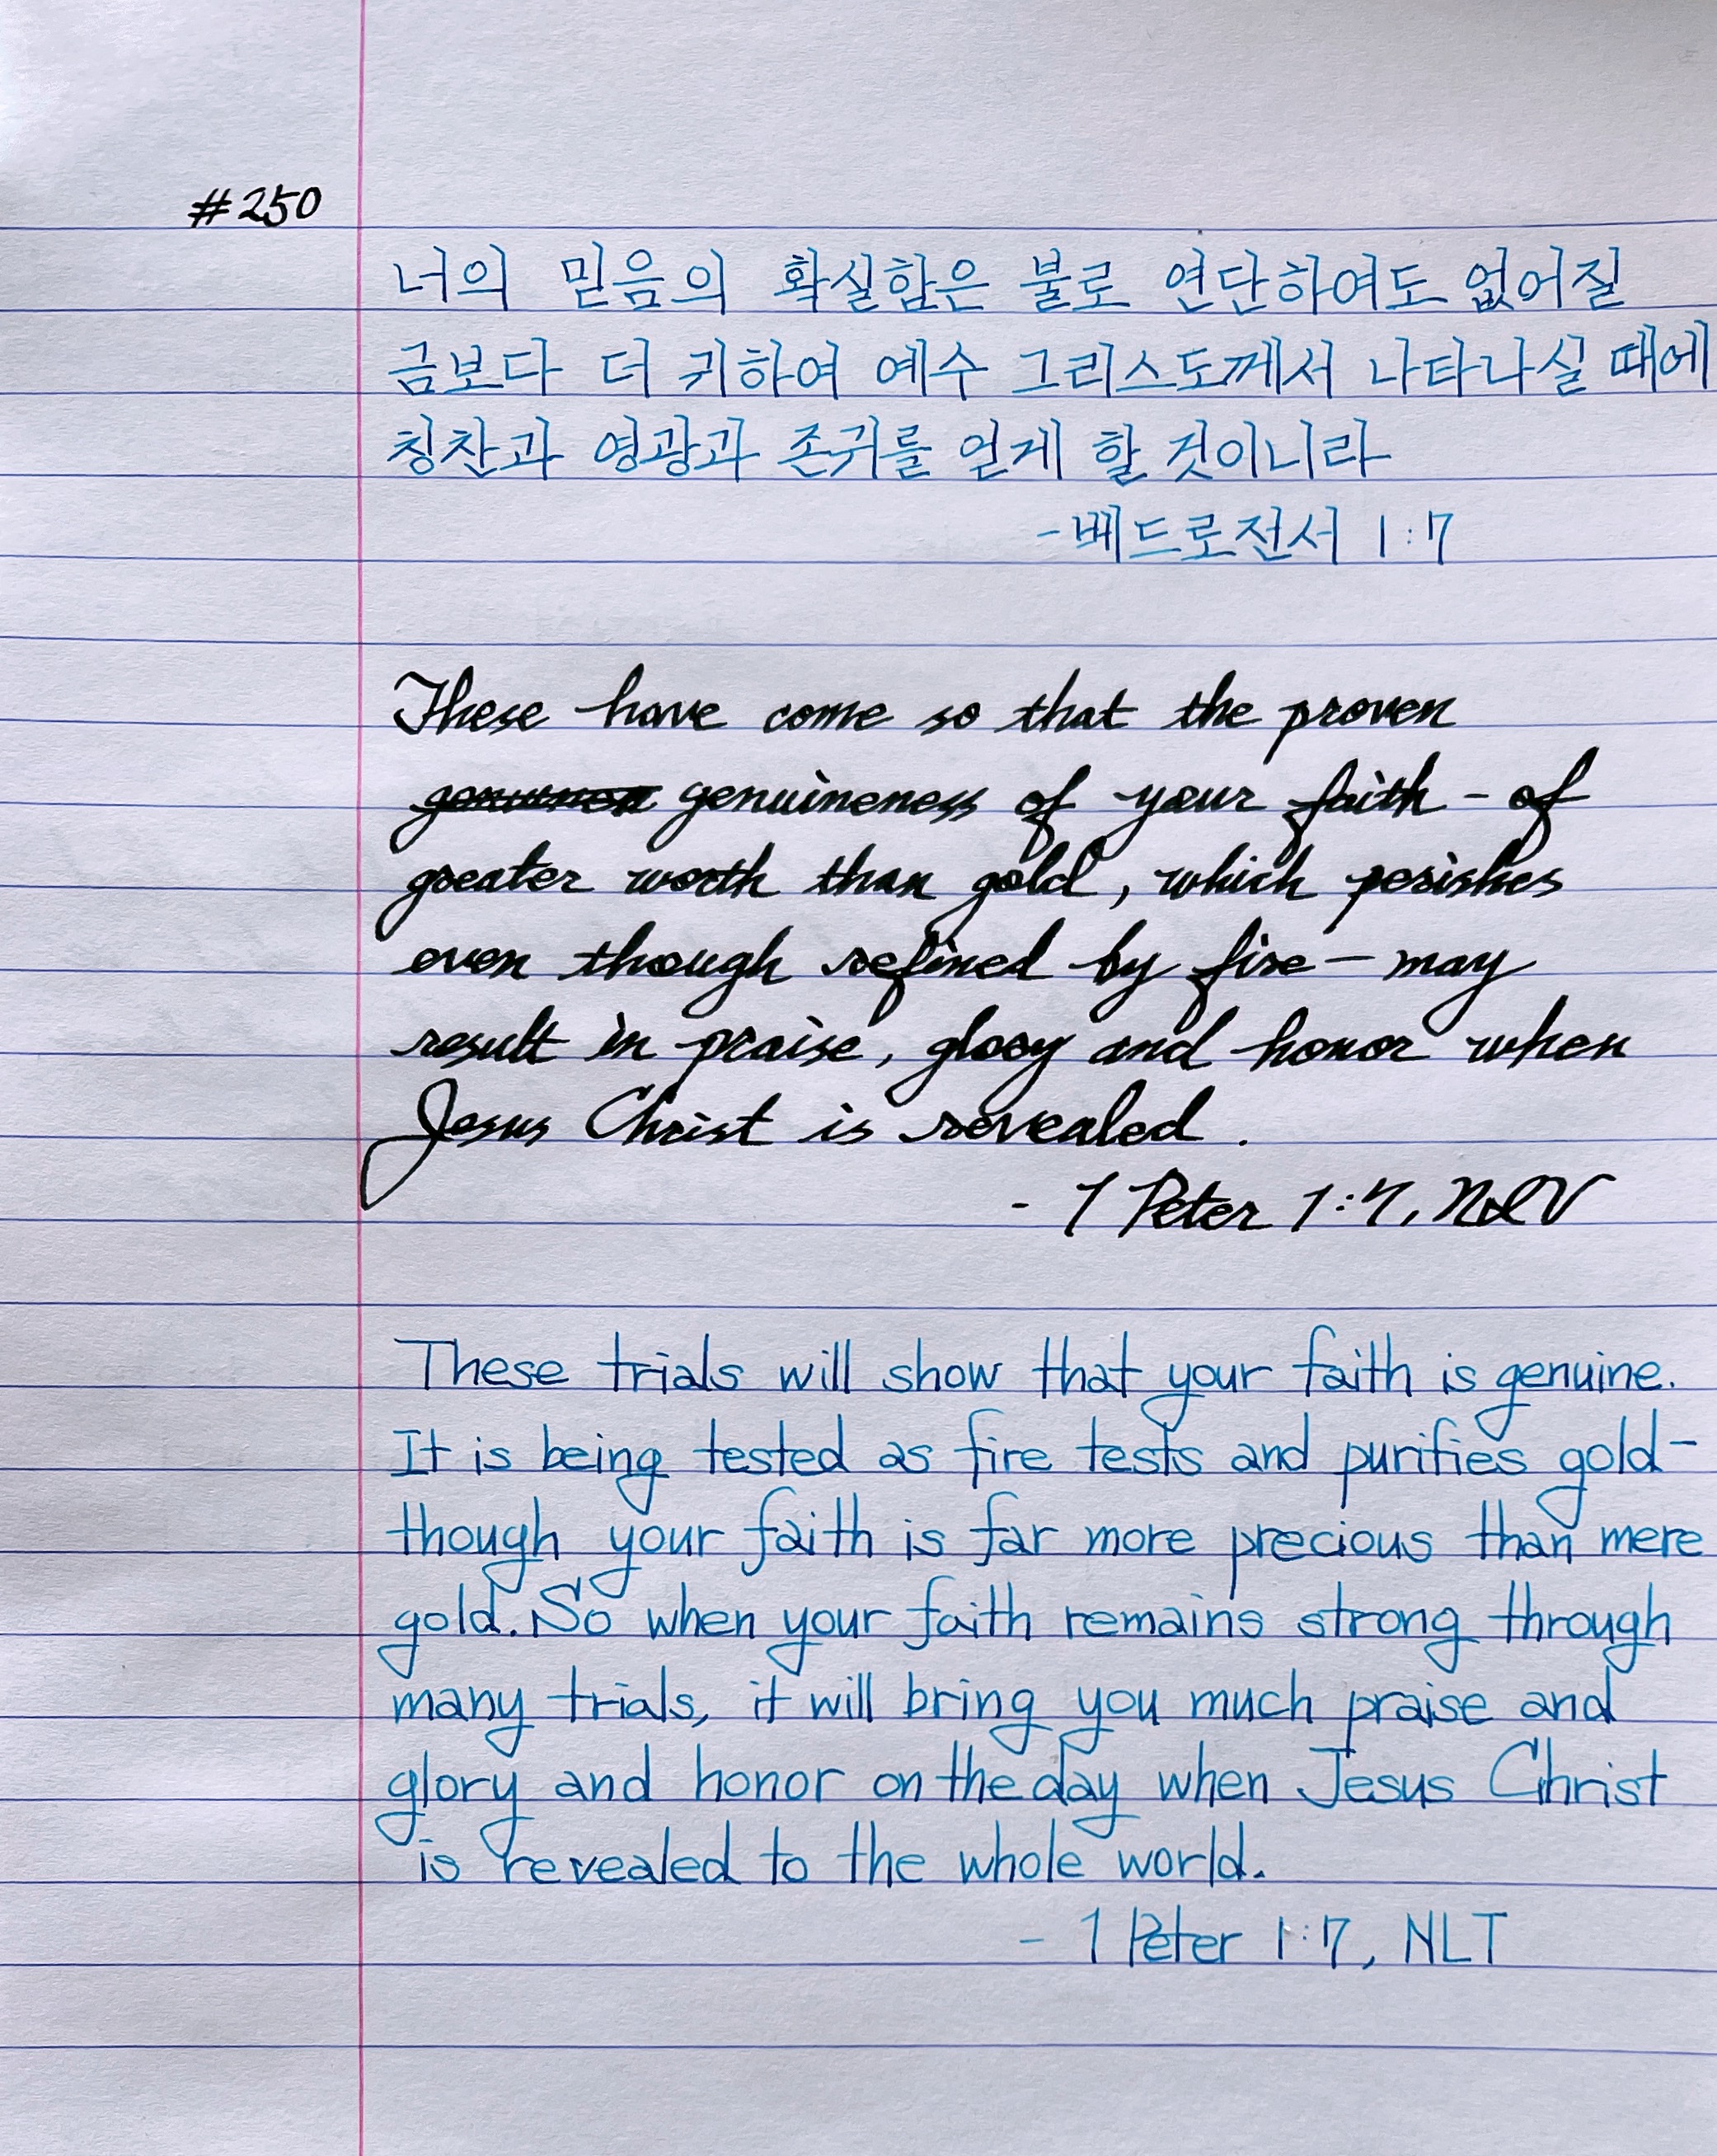 #250
너의 믿음의 확실함은 불로 연단하여도 없어질
금보다 더 귀하여 예수 그리스도께서 나타나실 때에
칭찬과 영광과 존귀를 얻게 할 것이니라
-베드로전서 1:7
These have come so that the proven
genuineness of your faith - of
greater worth than gold, which perishes
even though refined by fire - may
result in praise, glory and honor when
Jesus Christ is revealed.
- 1 Peter 1:7, NIV
These trials will show that your faith is genuine.
It is being tested as fire tests and purifies gold-
though your faith is far more precious than mere
gold. So when your faith remains strong through
many trials, it will bring you much praise and
glory and honor on the day when Jesus Christ
is revealed to the whole world.
- 1 Peter 1:7, NLT